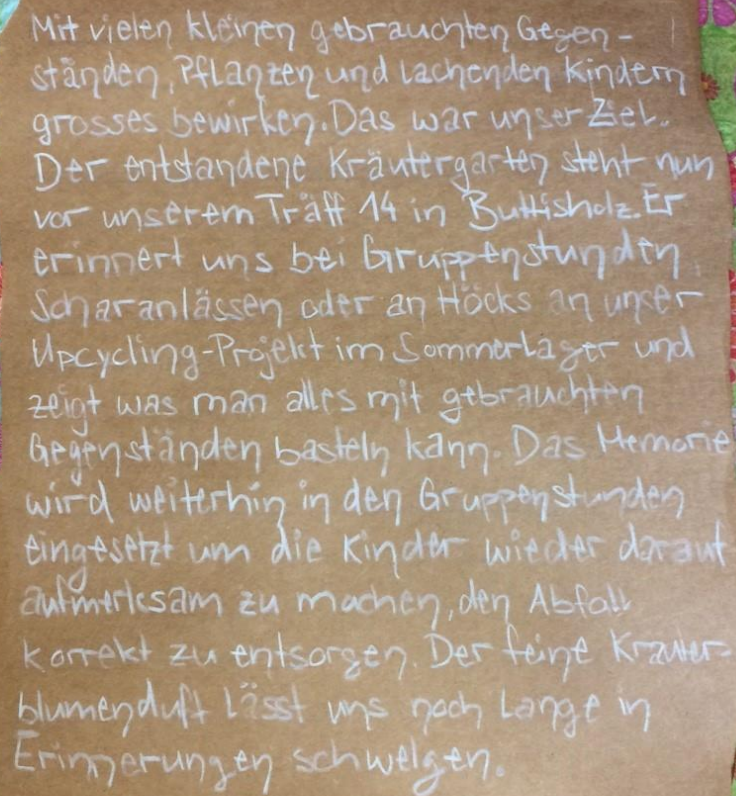 Mit vielen kleinen gebrauchten Gegen-
ständen, Pflanzen und lachenden Kindern
grosses bewirken. Das war unser Ziel.
Der entstandene Kräutergarten steht nun
vor unserem Träff 14 in Buttisholz. Er
erinnert uns bei Gruppenstunden,
Scharanlässen oder an Höcks an unser
Upcycling-Projekt im Sommerlager und
zeigt was man alles mit gebrauchten
Gegenständen basteln kann. Das Memorie
wird weiterhin in den Gruppenstunden
eingesetzt um die Kinder wieder darauf
aufmerksam zu machen, den Abfall
korrekt zu entsorgen. Der feine Kräuter-
blumenduft lässt uns noch lange in
Erinnerungen schwelgen.